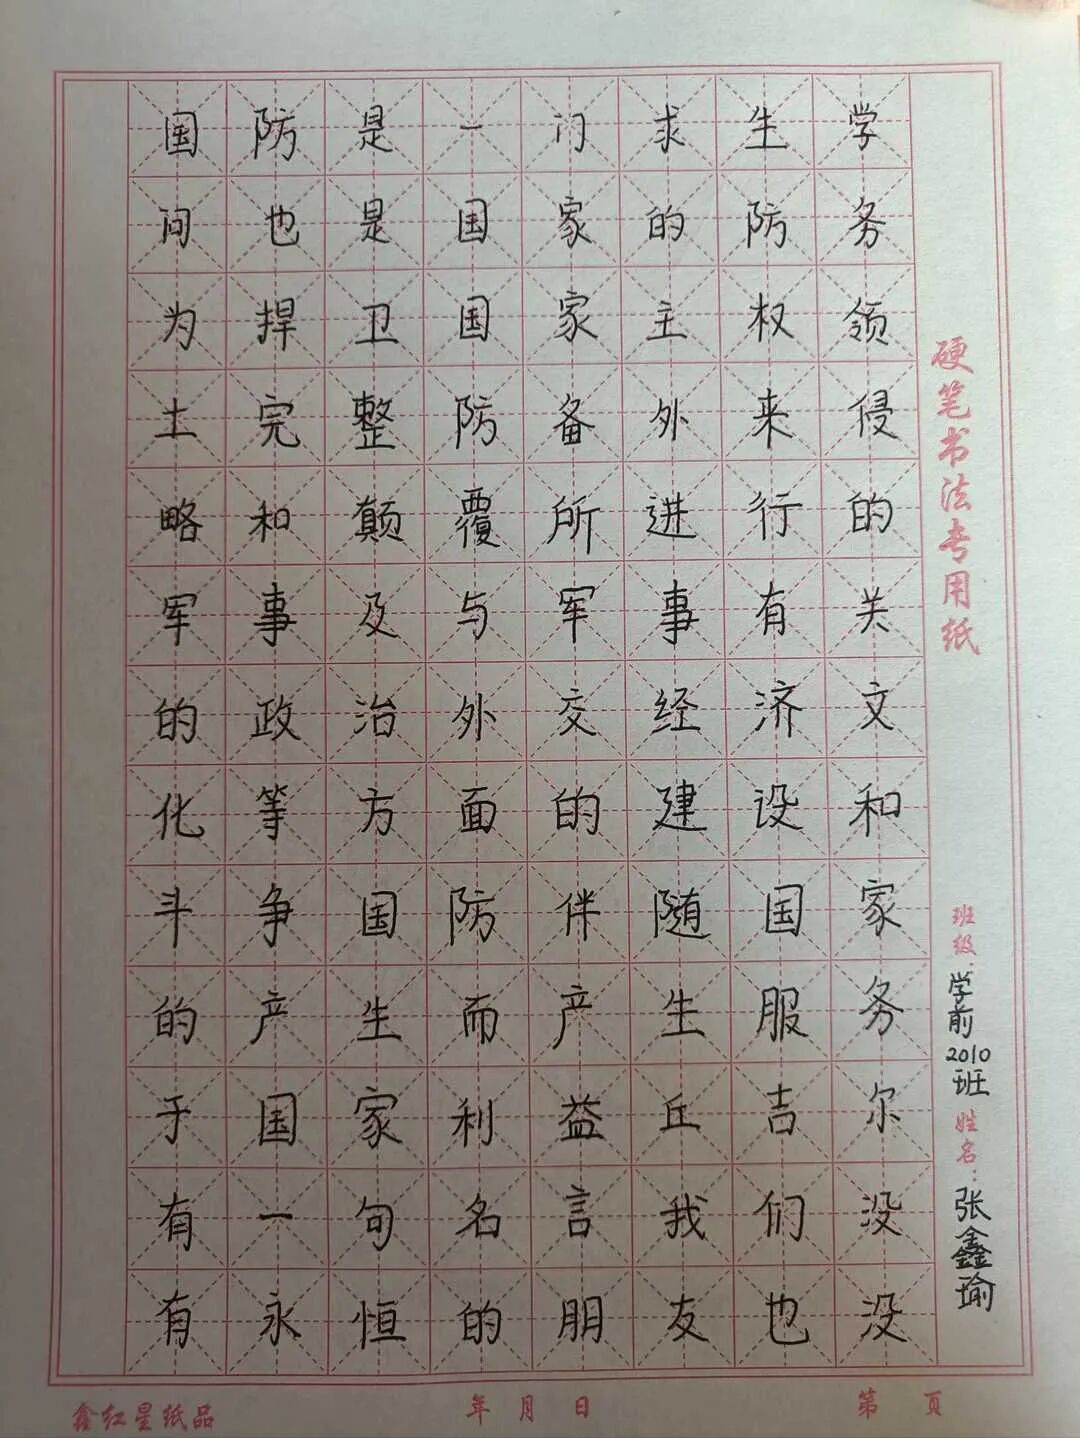 国防是一门求生学
问也是国家的防务
为捍卫国家主权领
土完整防备外来侵
略和颠覆所进行的
军事及与军事有关
的政治外交经济文
化等方面的建设和
斗争国防伴随国家
的产生而产生服务
于国家利益丘吉尔
有一句名言我们没
有永恒的朋友也没
硬笔书法专用纸
班级:学前2010班 姓名:张鑫瑜
鑫红星纸品 年 月 日 第 页